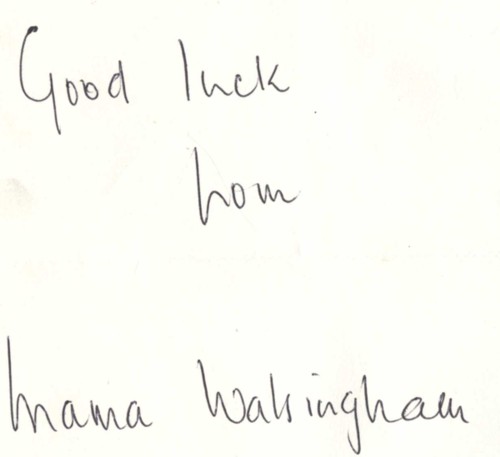 Good luck
from
Mama Walsingham